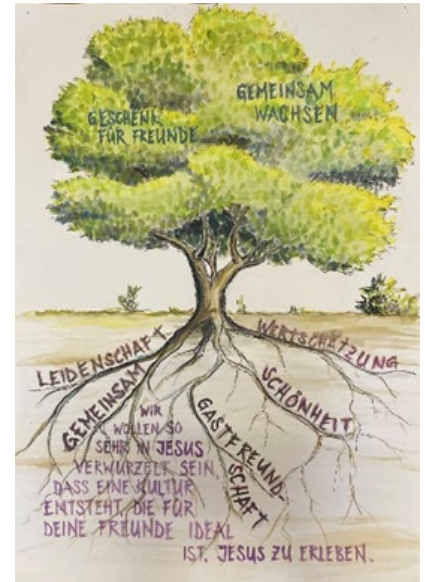 GESCHENK
FÜR FREUNDE
GEMEINSAM
WACHSEN
LEIDENSCHAFT
GEMEINSAM
WERTSCHÄTZUNG
SCHÖNHEIT
GASTFREUND-
SCHAFT
WIR
WOLLEN SO
SEHR IN JESUS
VERWURZELT SEIN,
DASS EINE KULTUR
ENTSTEHT, DIE FÜR
DEINE FREUNDE IDEAL
IST, JESUS ZU ERLEBEN.